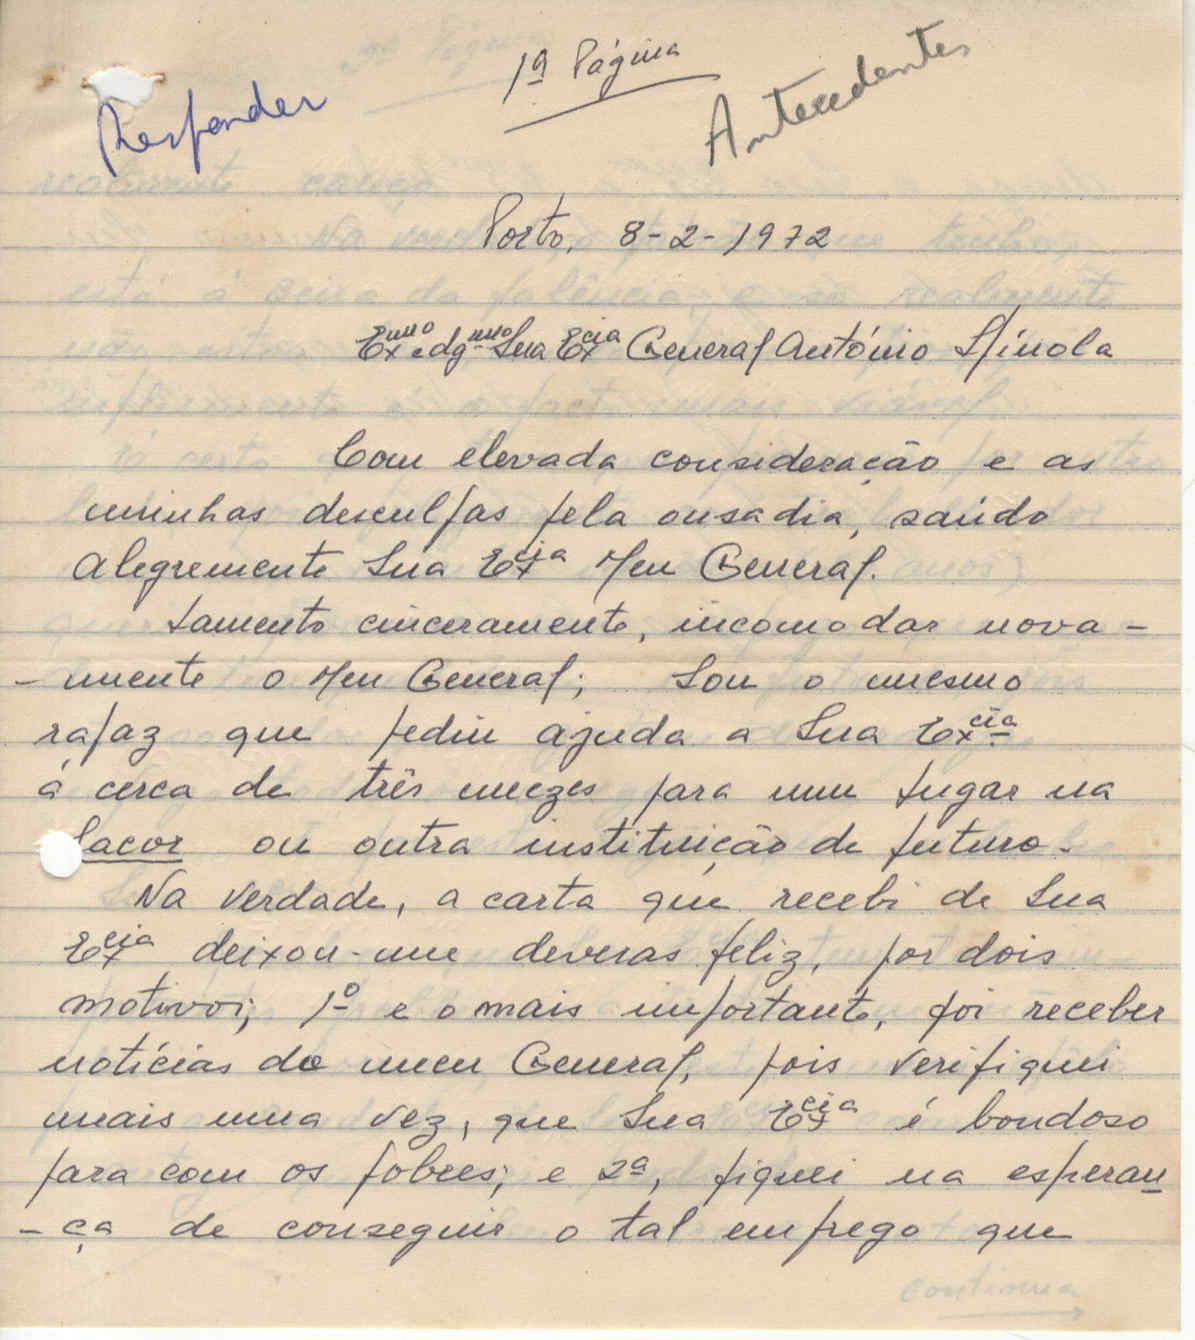 1ª Página
Responder
Antecedentes
Porto, 8-2-1972
Exmo e dgnmo Sua Excia General António Spínola
Com elevada consideração e as
minhas desculpas pela ousadia, saúdo
alegremente Sua Excia Meu General.
Lamento cinceramente, incomodar nova-
-mente o Meu General; Sou o mesmo
rapaz que pediu ajuda a Sua Excia
á cerca de três mezes para um lugar na
Sacor ou outra instituição de futuro.
Na verdade, a carta que recebi de Sua
Excia deixou-me deveras feliz, por dois
motivos; 1º e o mais importante, foi receber
notícias do meu General, pois verifiquei
mais uma vez, que Sua Excia é bondoso
para com os pobres; e 2ª, fiquei na esperan
-ça de conseguir o tal emprego que
continua